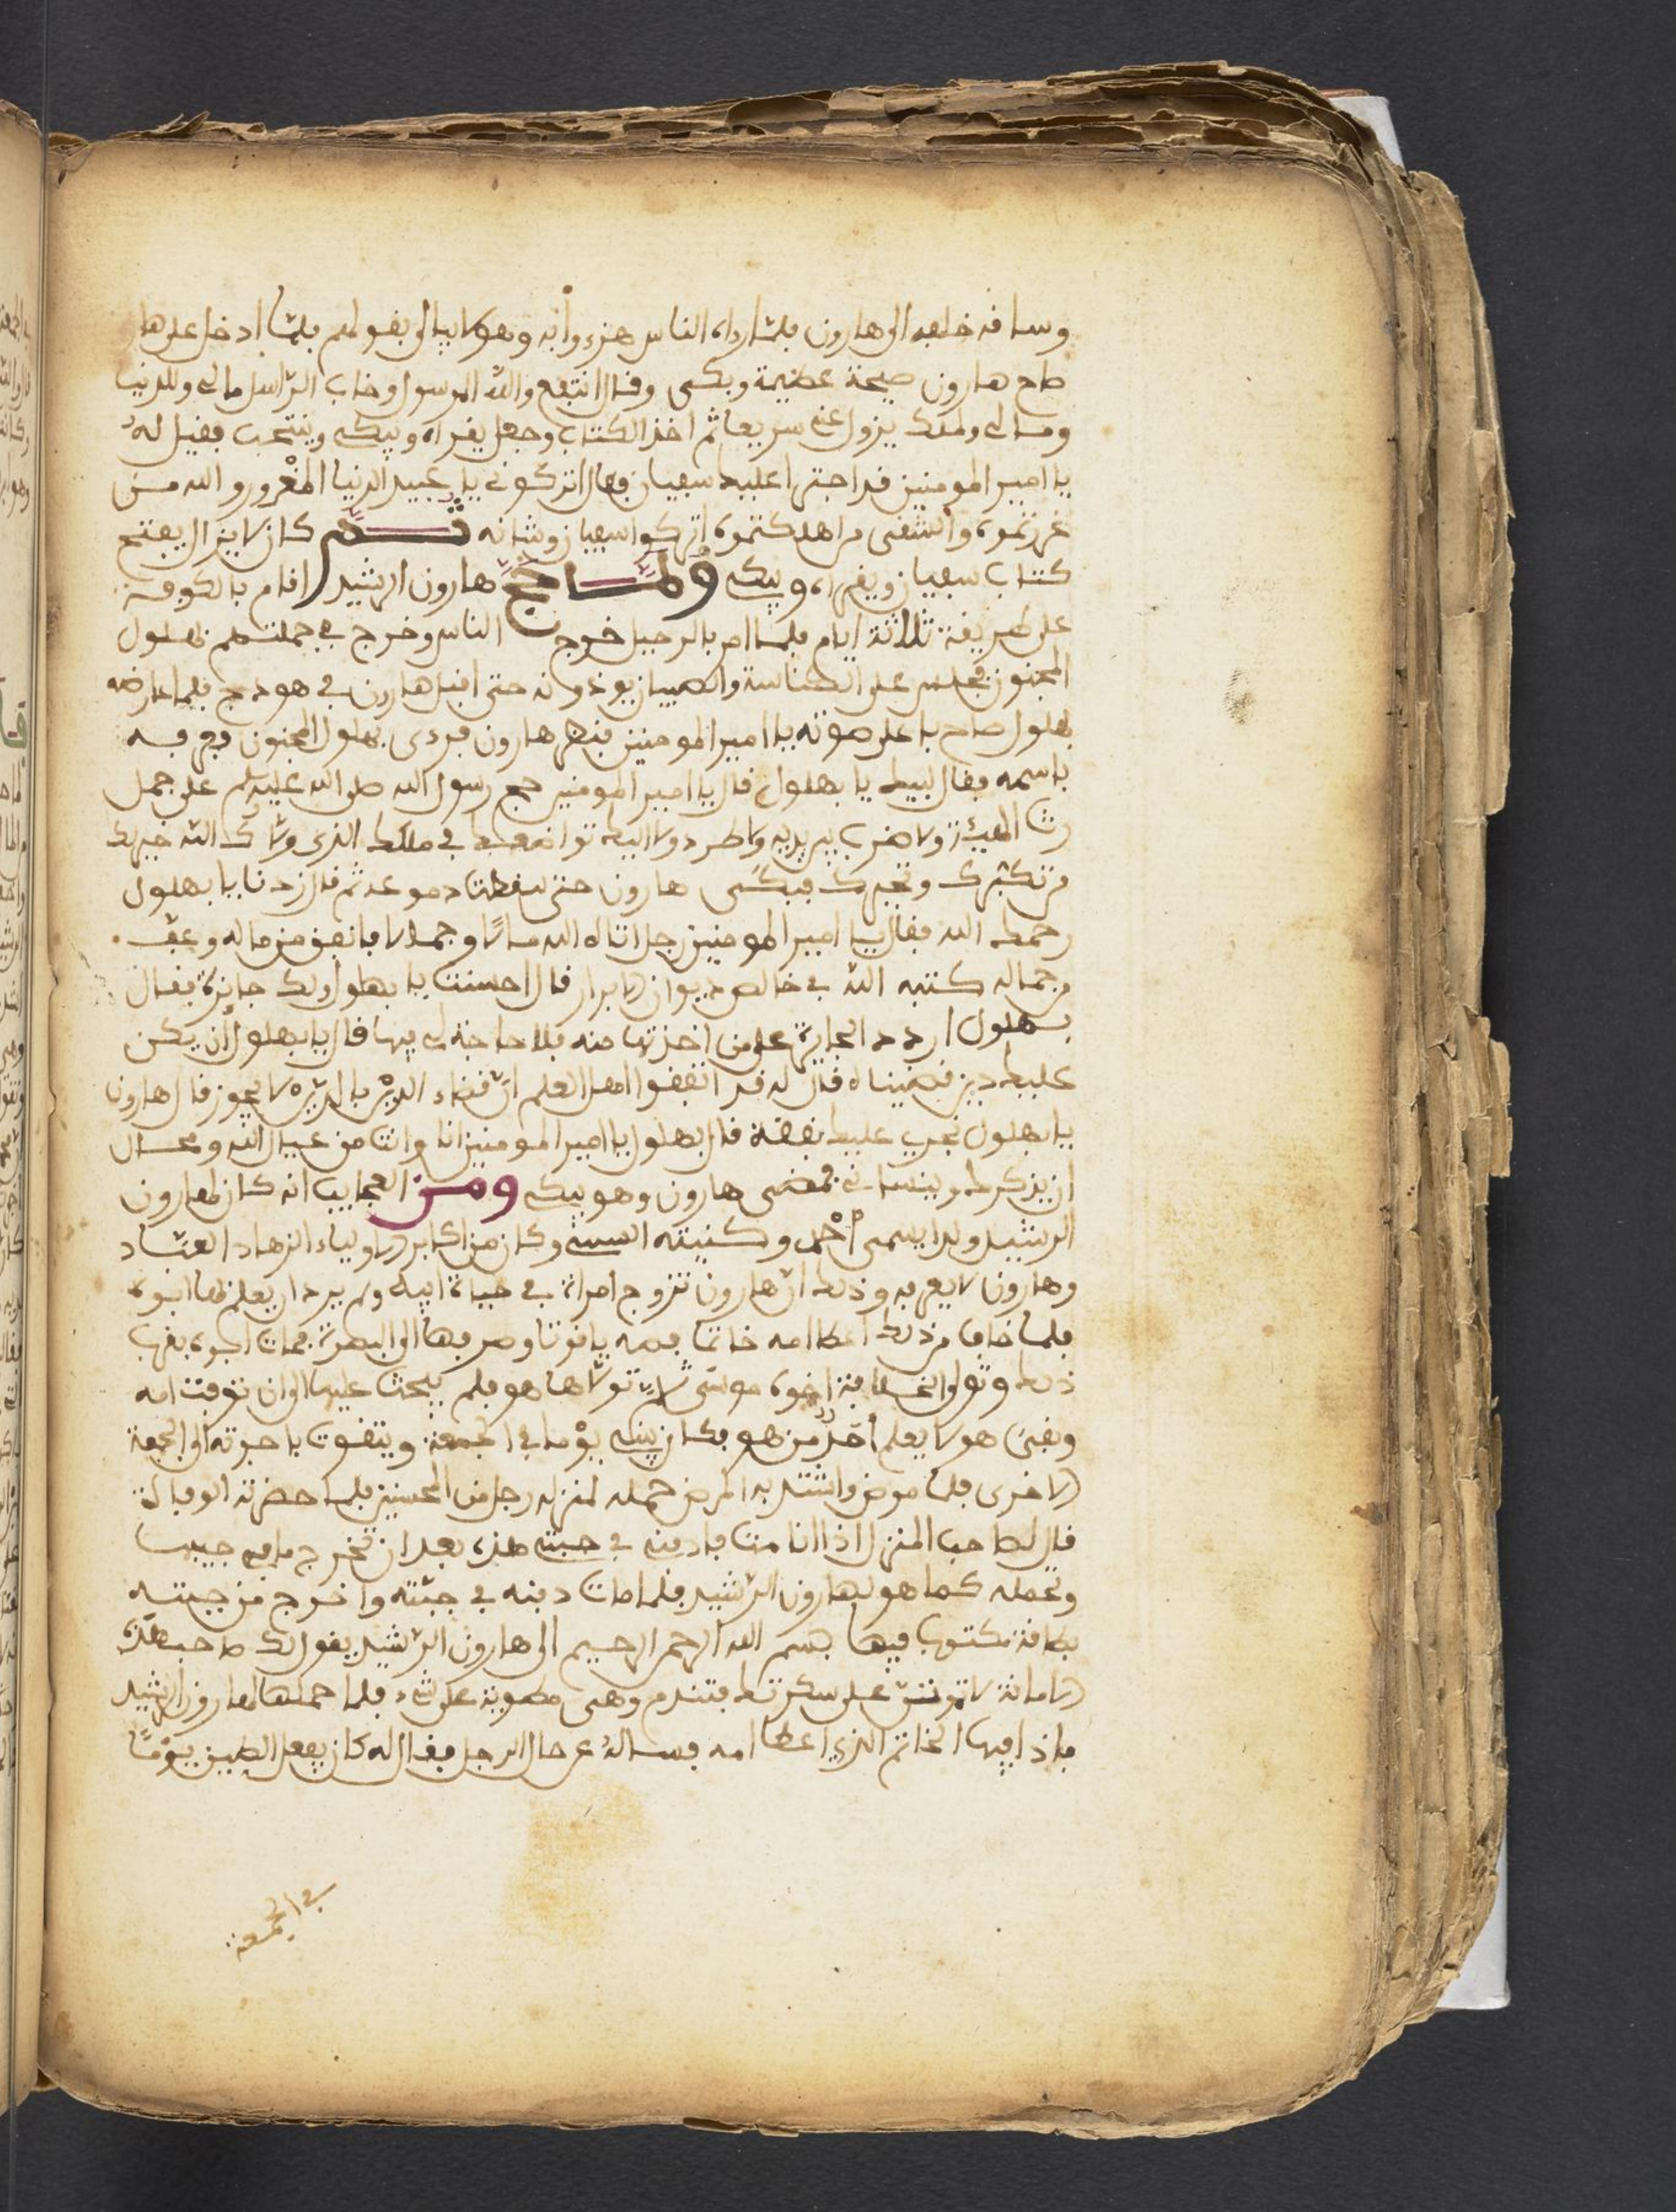 وساقه خلفه الى هارون فلما راه الناس هزءوا به وهو لا يبالي بقولهم فلما ادخل على هارون
صاح هارون صيحة عظيمة وبكى وقال انتفع والله الرسول وخاب الراسل مالي وللدنيا
ومالي وملك يزول عني سريعا ثم اخذ الكتاب وجعل يقراه ويبكي وينتحب فقيل له
يا امير المومنين قد اجترا عليك سفيان فقال اتركوني يا عبيد الدنيا المغرور والله من
غررتموه والشقي من اهلكتموه اتركوا سفيان وشانه ثم كان لا يزال يفتح
كتاب سفيان ويقراه ويبكي ولما حج هارون الرشيد اقام بالكوفة
على طريقه ثلاثة ايام فلما امر بالرحيل خرج الناس وخرج في جملتهم بهلول
المجنون فجلس على الكناسة والصبيان يوذونه حتى اقبل هارون في هودج فلما عارضه
بهلول صاح باعلى صوته يا امير المومنين فنظر هارون فرءى بهلول المجنون فعرفه
باسمه فقال لبيك يا بهلول قال يا امير المومنين حج رسول الله صلى الله عليه وسلم على جمل
رث الهيئة ولا ضرب بين يديه ولا طرد ولا اليك تواضعك في ملكك الذي ولاك الله خير لك
من تكبرك وتجبرك فبكى هارون حتى سقطت دموعه ثم قال زدنا يا بهلول
رحمك الله فقال يا امير المومنين رجل اتاه الله مالا وجمالا فانفق من ماله وعف
وجماله كتبه الله في خالص ديوان الابرار قال احسنت يا بهلول ولك جايزة فقال
بهلول اردد الجايزة على من اخذتها منه فلا حاجة لي فيها قال يا بهلول ان يكن
عليك دين قضيناه قال له قد اتفقوا اهل العلم ان قضاء الدين بالدين لا يجوز قال هارون
يا بهلول نجري عليك نفقة قال بهلول يا امير المومنين انا وانت من عيال الله ومحال
ان يذكرك وينساني فمضى هارون وهو يبكي ومن العجايب انه كان لهارون
الرشيد ولدا يسمى احمد وكنيته السبتي وكان من اكابر الاولياء الزهاد العباد
وهارون لا يعرفه وذلك ان هارون تزوج امراة في حياة ابيه ولم يرد ان يعلم بها ابوه
فلما خاف من ذلك اعطا امه خاتما فصه ياقوتا وصرفها الى البصرة فمات ابوه بقرب
ذلك وتولى الخلافة اخوه موسى ثم تولاها هو فلم يبحث عليها الى ان توفيت امه
وبقى هو لا يعلم احد من هو فكان يبني يوما في الجمعة ويتقوت باجرته الى الجمعة
الاخرى فلما مرض واشتد به المرض حمله لمنزله رجل من المحسنين فلما حضرته الوفاة
قال لصاحب المنزل اذا انا مت فادفني في جبتي هذه بعد ان تخرج ما في جيبها
وتحمله كما هو لهارون الرشيد فلما مات دفنه في جبته واخرج من جيبه
بطاقة مكتوب فيها بسم الله الرحمن الرحيم الى هارون الرشيد يقول لك صاحب هذه
الامانة لا تموتن على سكرتك فتندم وهي مطوية على شيء فلما حملها لهارون الرشيد
فاذا فيها الخاتم الذي اعطا امه فساله عن حال الرجل فقال له كان يعمل الطين يوما
في الجمعة